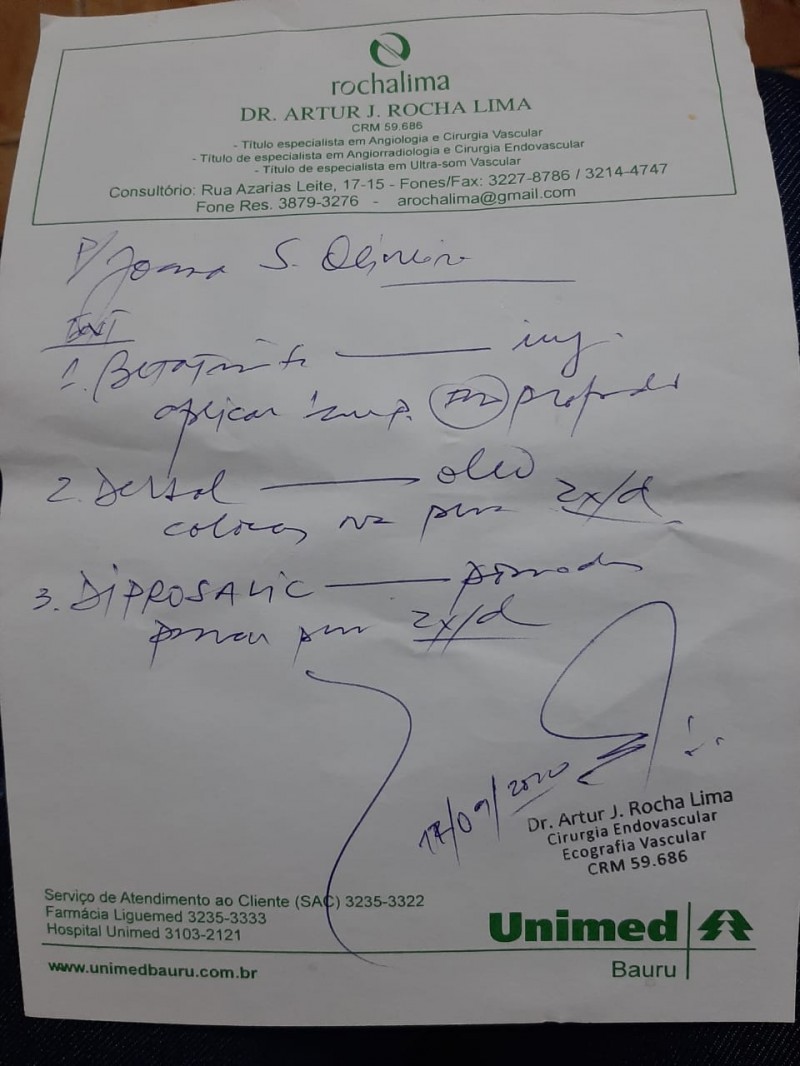 rochalima
DR. ARTUR J. ROCHA LIMA
CRM 59.686
- Título especialista em Angiologia e Cirurgia Vascular
- Título de especialista em Angiorradiologia e Cirurgia Endovascular
- Título de especialista em Ultra-som Vascular
Consultório: Rua Azarias Leite, 17-15 - Fones/Fax: 3227-8786 / 3214-4747
Fone Res. 3879-3276 - arochalima@gmail.com
P/ Joana S. Oliveira
1. inj.
aplicar 1 amp. profunda
2. Dersol oleo
colocar na perna 2x/d
3. DIPROSALIC pomada
passar perna 2x/d
/09/2020
Dr. Artur J. Rocha Lima
Cirurgia Endovascular
Ecografia Vascular
CRM 59.686
Serviço de Atendimento ao Cliente (SAC) 3235-3322
Farmácia Liguemed 3235-3333
Hospital Unimed 3103-2121
www.unimedbauru.com.br
Unimed
Bauru